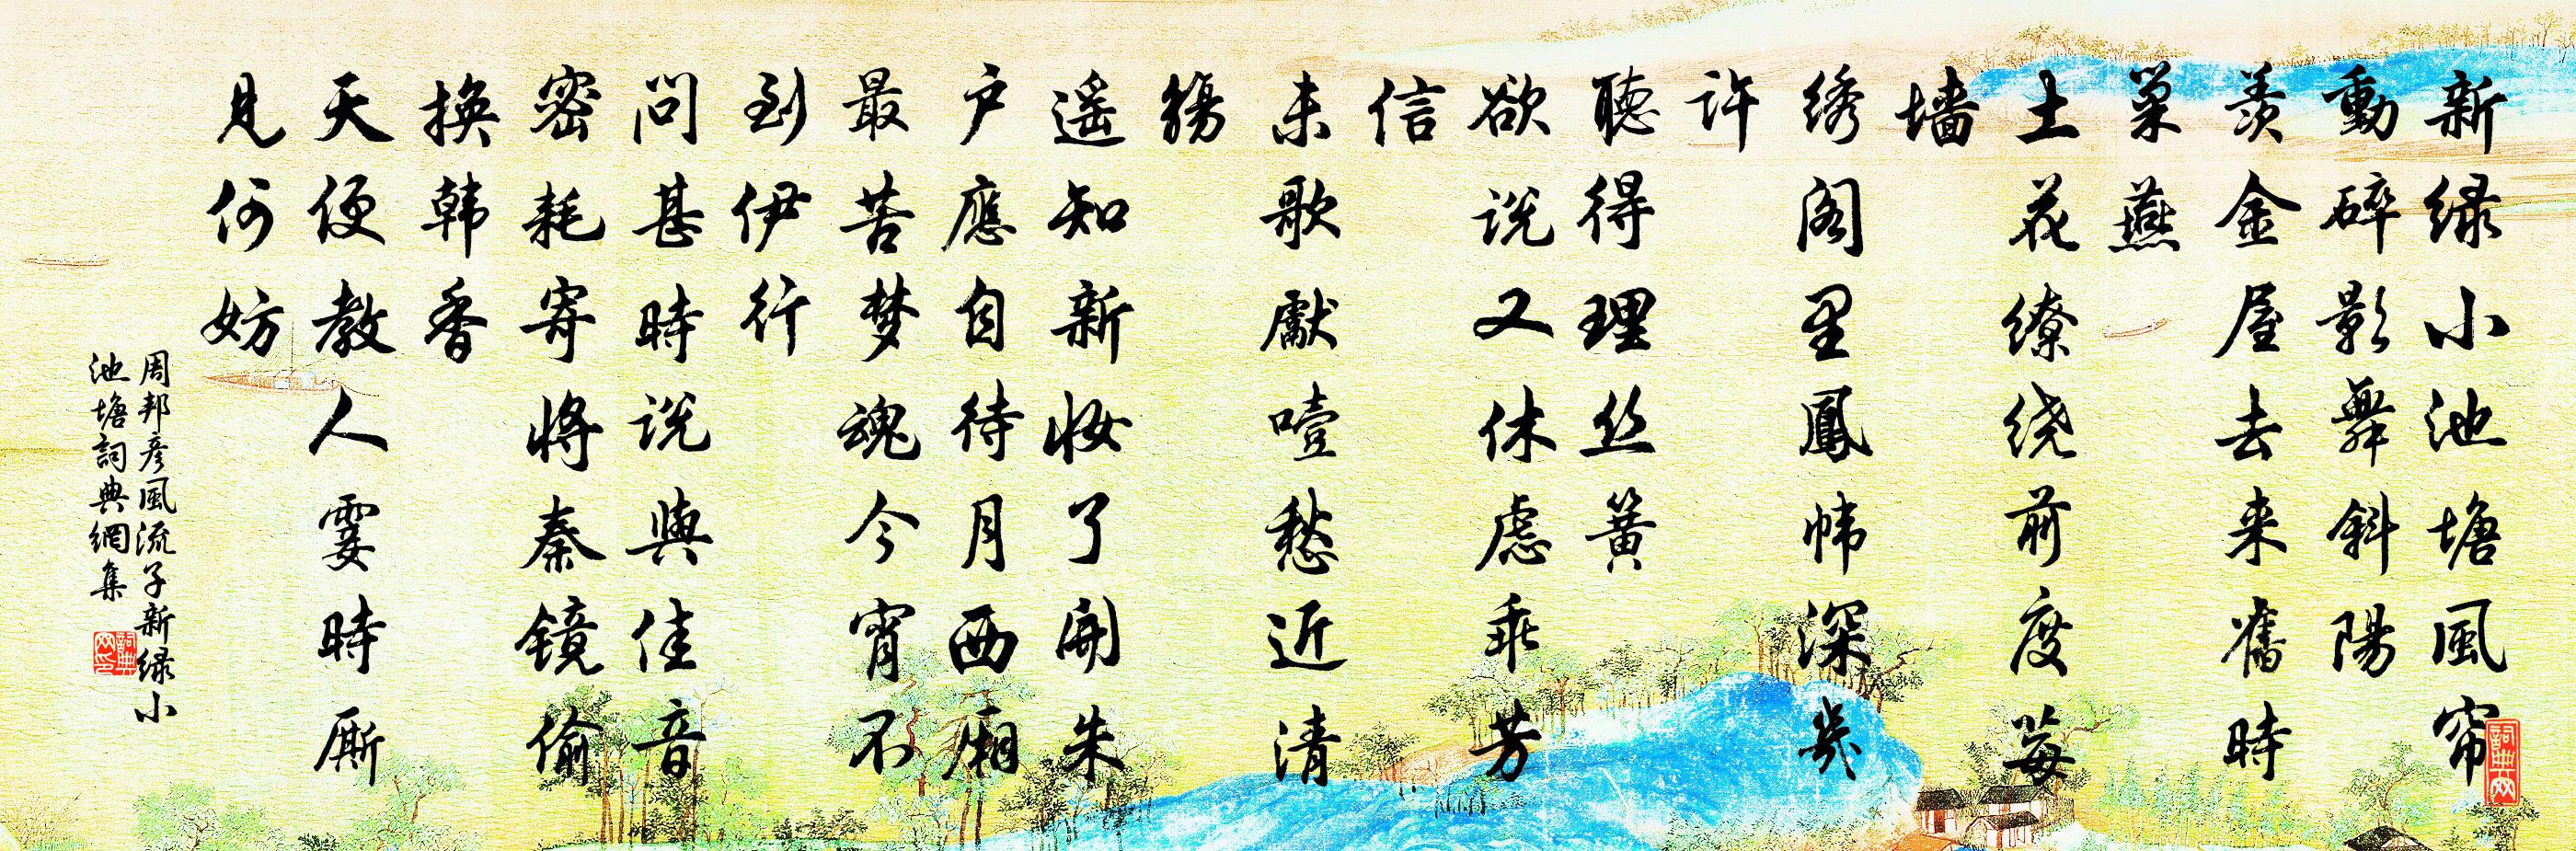 新绿小池塘風帘
動碎影舞斜陽
羡金屋去来舊時
巢燕
土花缭绕前度莓
墙
绣阁里鳳帏深幾
许
聽得理丝簧
欲说又休虑乖芳
信
未歌獻噎愁近清
觞
遥知新妆了開朱
户應自待月西廂
最苦梦魂今宵不
到伊行
問甚時说與佳音
密耗寄将秦镜偷
换韩香
天便教人霎時厮
見何妨
周邦彦風流子新绿小
池塘詞典網集
詞典网印
詞典网